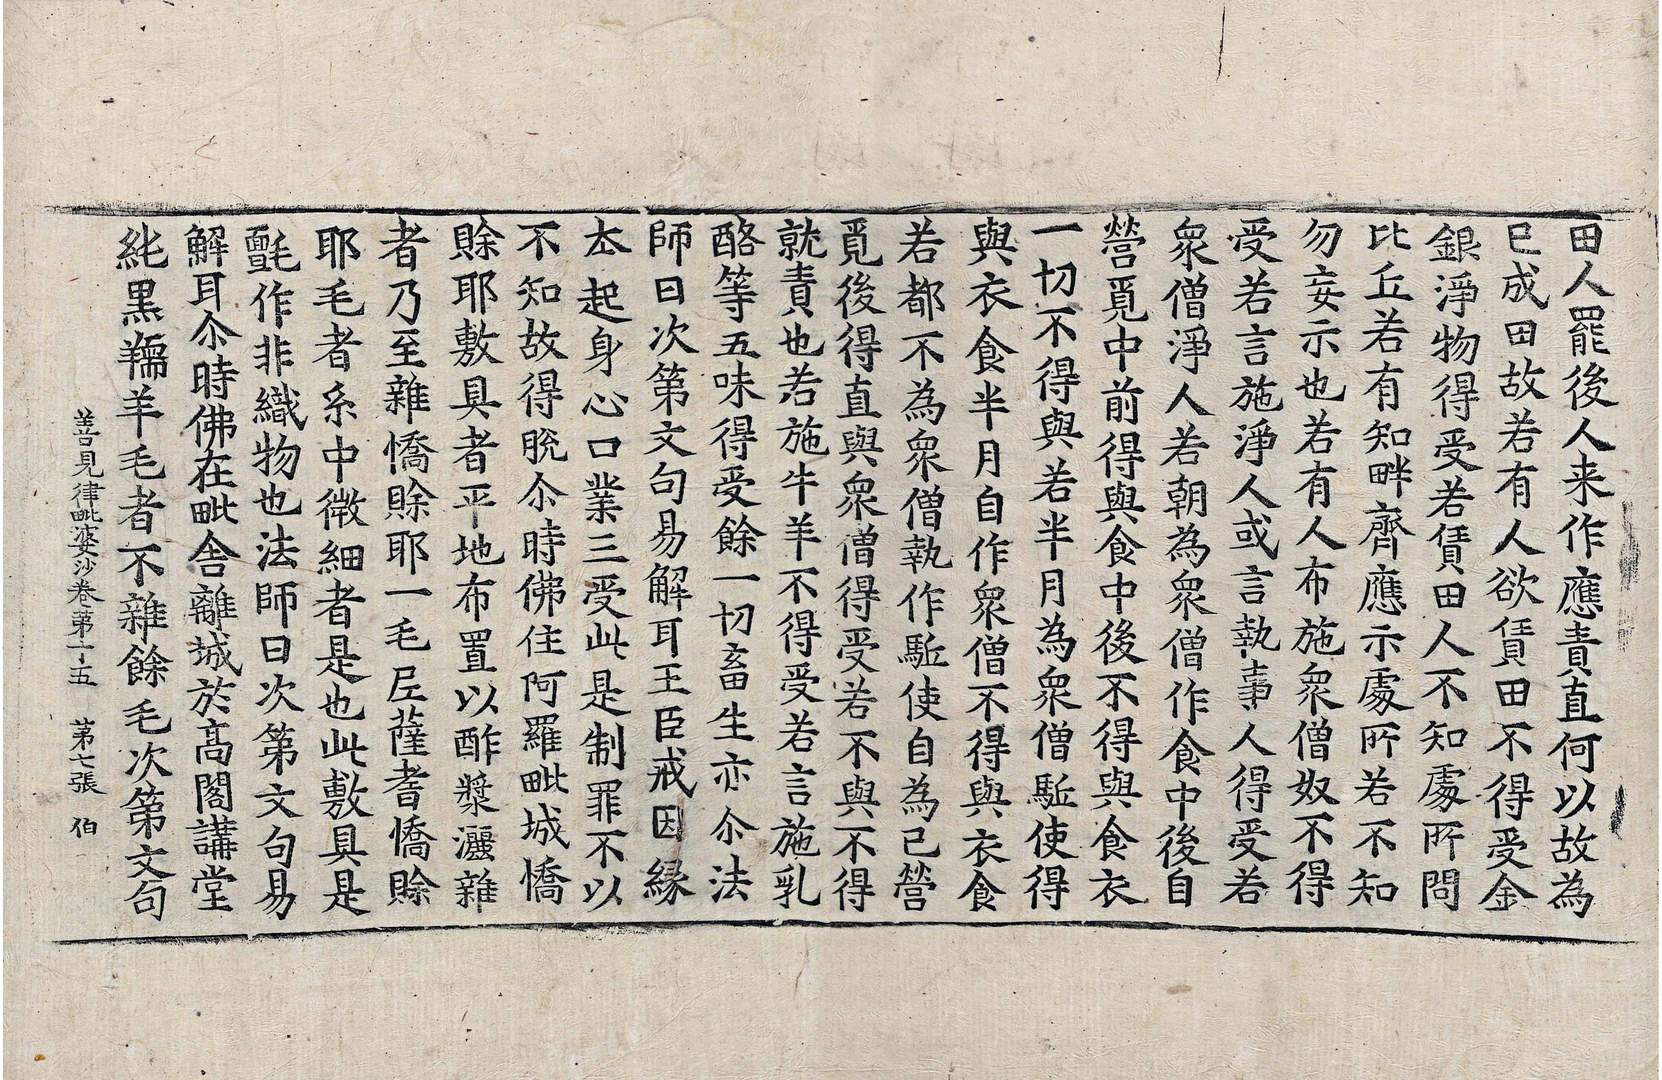 田人罷後人来作應責直何以故為
已成田故若有人欲賃田不得受金
銀淨物得受若賃田人不知處所問
比丘若有知畔齊應示處所若不知
勿妄示也若有人布施衆僧奴不得
受若言施淨人或言執事人得受若
衆僧淨人若朝為衆僧作食中後自
營覓中前得與食中後不得與食衣
一切不得與若半月為衆僧駈使得
與衣食半月自作衆僧不得與衣食
若都不為衆僧執作駈使自為己營
覓後得直與衆僧得受若不與不得
就責也若施牛羊不得受若言施乳
酪等五味得受餘一切畜生亦尒法
師曰次第文句易解耳王臣戒因縁
夲起身心口業三受此是制罪不以
不知故得脫尒時佛住阿羅毗城憍
賒耶敷具者平地布置以酢漿灑雜
者乃至雜憍賒耶一毛尼薩耆憍賒
耶毛者糸中微細者是也此敷具是
氎作非織物也法師曰次第文句易
解耳尒時佛在毗舍離城於高閣講堂
純黒羺羊毛者不雜餘毛次第文句
善見律毗婆沙卷第十五　第七張　伯